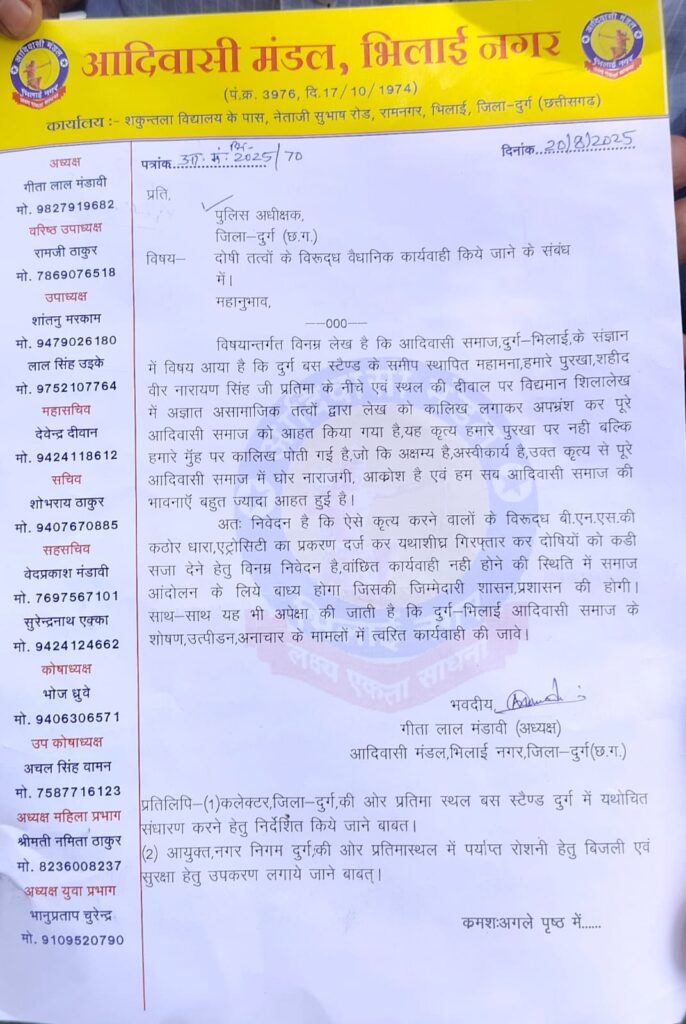 आदिवासी मंडल, भिलाई नगर
(पं.क्र. 3976, दि.17/10/1974)
कार्यालय :- शकुन्तला विद्यालय के पास, नेताजी सुभाष रोड, रामनगर, भिलाई, जिला-दुर्ग (छत्तीसगढ)
अध्यक्ष
गीता लाल मंडावी
मो. 9827919682
वरिष्ठ उपाध्यक्ष
रामजी ठाकुर
मो. 7869076518
उपाध्यक्ष
शांतनु मरकाम
मो. 9479026180
लाल सिंह उइके
मो. 9752107764
महासचिव
देवेन्द्र दीवान
मो. 9424118612
सचिव
शोभराय ठाकुर
मो. 9407670885
सहसचिव
वेदप्रकाश मंडावी
मो. 7697567101
सुरेन्द्रनाथ एक्का
मो. 9424124662
कोषाध्यक्ष
भोज ध्रुवे
मो. 9406306571
उप कोषाध्यक्ष
अचल सिंह वामन
मो. 7587716123
अध्यक्ष महिला प्रभाग
श्रीमती नमिता ठाकुर
मो. 8236008237
अध्यक्ष युवा प्रभाग
भानुप्रताप चुरेन्द्र
मो. 9109520790
पत्रांक आ. मं. भि. 2025/70
दिनांक 20/8/2025
प्रति,
पुलिस अधीक्षक,
जिला-दुर्ग (छ.ग.)
विषय- दोषी तत्वों के विरूद्ध वैधानिक कार्यवाही किये जाने के संबंध
में।
महानुभाव,
---000---
विषयान्तर्गत विनम्र लेख है कि आदिवासी समाज,दुर्ग-भिलाई,के संज्ञान
में विषय आया है कि दुर्ग बस स्टैण्ड के समीप स्थापित महामना,हमारे पुरखा,शहीद
वीर नारायण सिंह जी प्रतिमा के नीचे एवं स्थल की दीवाल पर विद्यमान शिलालेख
में अज्ञात असामाजिक तत्वों द्वारा लेख को कालिख लगाकर अपभ्रंश कर पूरे
आदिवासी समाज को आहत किया गया है,यह कृत्य हमारे पुरखा पर नही बल्कि
हमारे मुँह पर कालिख पोती गई है,जो कि अक्षम्य है,अस्वीकार्य है,उक्त कृत्य से पूरे
आदिवासी समाज में घोर नाराजगी, आक्रोश है एवं हम सब आदिवासी समाज की
भावनाऍ बहुत ज्यादा आहत हुई है।
अतः निवेदन है कि ऐसे कृत्य करने वालों के विरूद्ध बी.एन.एस.की
कठोर धारा,एट्रोसिटी का प्रकरण दर्ज कर यथाशीघ्र गिरफ्तार कर दोषियों को कडी
सजा देने हेतु विनम्र निवेदन है,वांछित कार्यवाही नही होने की स्थिति में समाज
आंदोलन के लिये बाध्य होगा जिसकी जिम्मेदारी शासन,प्रशासन की होगी।
साथ-साथ यह भी अपेक्षा की जाती है कि दुर्ग-भिलाई आदिवासी समाज के
शोषण,उत्पीडन,अनाचार के मामलों में त्वरित कार्यवाही की जावे।
लक्ष्य एकता साधना
भवदीय
गीता लाल मंडावी (अध्यक्ष)
आदिवासी मंडल,भिलाई नगर,जिला-दुर्ग(छ.ग.)
प्रतिलिपि-(1)कलेक्टर,जिला-दुर्ग,की ओर प्रतिमा स्थल बस स्टैण्ड दुर्ग में यथोचित
संधारण करने हेतु निर्देशित किये जाने बाबत।
(2) आयुक्त,नगर निगम दुर्ग,की ओर प्रतिमास्थल में पर्याप्त रोशनी हेतु बिजली एवं
सुरक्षा हेतु उपकरण लगाये जाने बाबत्।
कमशःअगले पृष्ठ में......